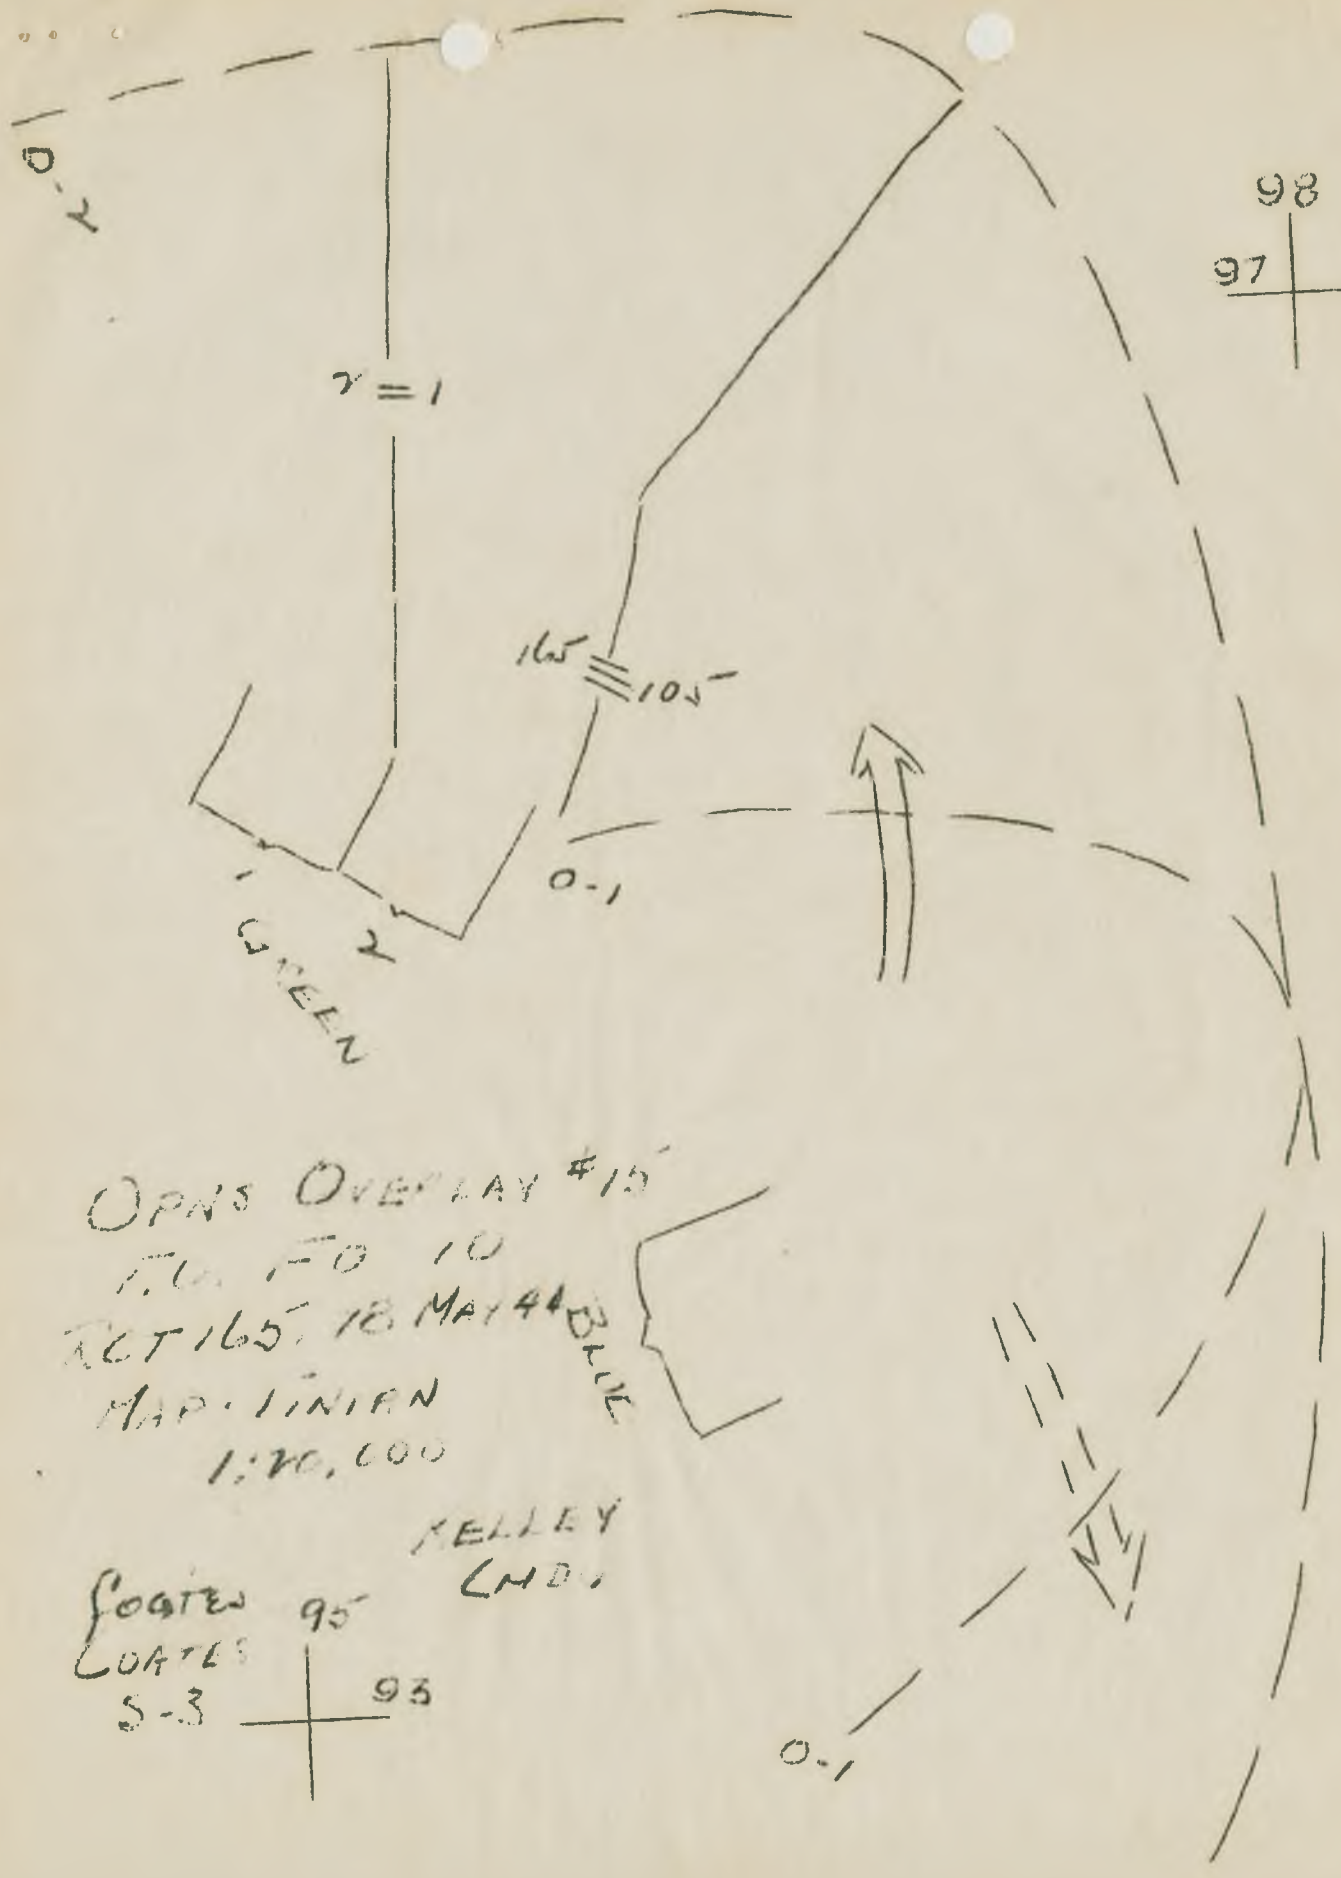 O-2
98
97
2 = 1
165
105
O-1
1
2
GREEN
OPNS OVERLAY #15
F.O. 10
RCT 165. 18 MAY 44
BLUE
MAP: TINIAN
1:20,000
KELLEY
CMDG
COATES
95
S-3
93
O-1